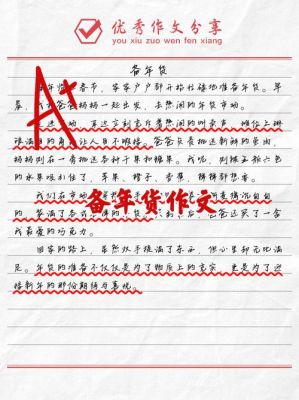 优秀作文分享
you xiu zuo wen fen xiang
A+
备年货
春节,家家户户都开始忙碌地准备年货。早
我和爸爸妈妈一起出发,去热闹的年货市场。
耳边立刻充斥着热闹的叫卖声,摊位上琳
琅满目的商品让人目不暇接。爸爸负责挑选新鲜的鱼肉,
妈妈则在一旁挑选各种干果和糖果。我呢,则被五颜六色
的水果吸引住了,苹果、橙子、香蕉,样样都想要。
我们在市场
备年货作文
装满了各式各样的年货 爸爸还买了一盒
我最爱的巧克力。
回家的路上,虽然双手提满了东西,但心里却无比满
足。年货的准备不仅仅是为了物质上的充实,更是为了迎
接新年的那份期待与喜悦。